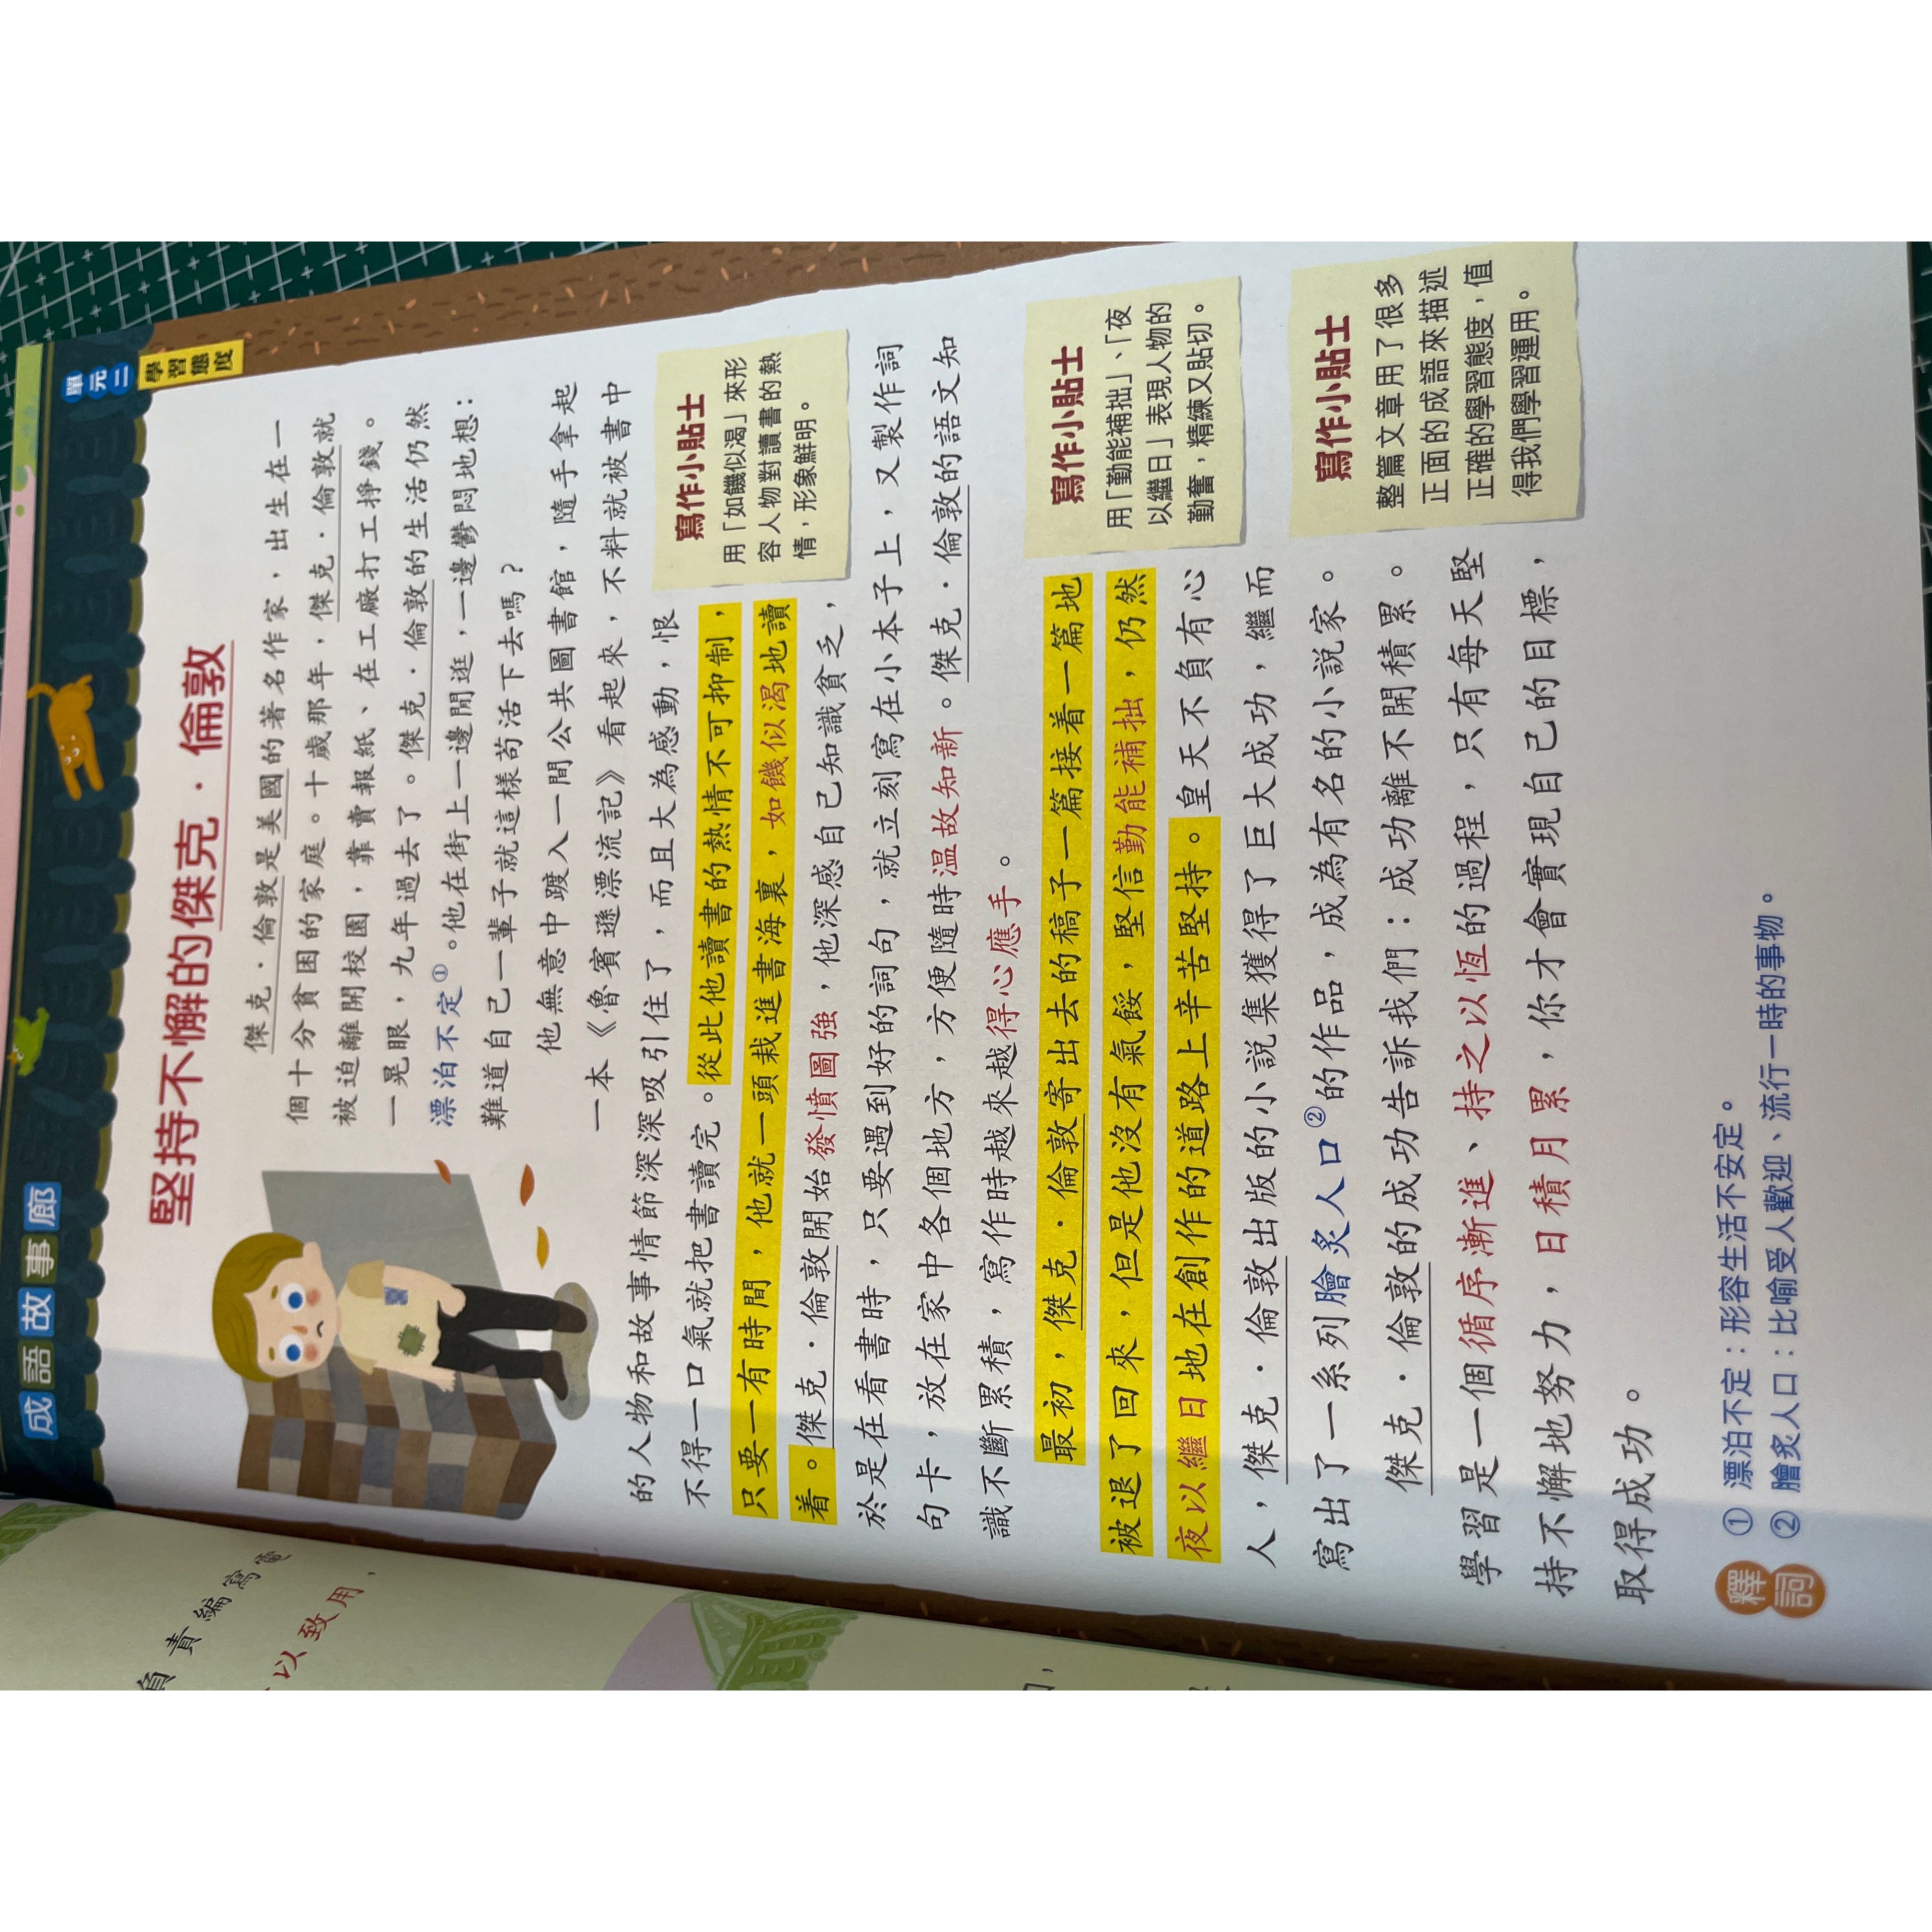 成語故事廊
單元二
學習態度
堅持不懈的傑克·倫敦
傑克·倫敦是美國的著名作家，出生在一
個十分貧困的家庭。十歲那年，傑克·倫敦就
被迫離開校園，靠賣報紙、在工廠打工掙錢。
一晃眼，九年過去了。傑克·倫敦的生活仍然
漂泊不定①。他在街上一邊閒逛，一邊鬱悶地想：
難道自己一輩子就這樣苟活下去嗎？
他無意中踱入一間公共圖書館，隨手拿起
一本《魯賓遜漂流記》看起來，不料就被書中
的人物和故事情節深深吸引住了，而且大為感動，恨
不得一口氣就把書讀完。從此他讀書的熱情不可抑制，
只要一有時間，他就一頭栽進書海裏，如饑似渴地讀
着。傑克·倫敦開始發憤圖強，他深感自己知識貧乏，
於是在看書時，只要遇到好的詞句，就立刻寫在小本子上，又製作詞
句卡，放在家中各個地方，方便隨時温故知新。傑克·倫敦的語文知
識不斷累積，寫作時越來越得心應手。
寫作小貼士
用「如饑似渴」來形
容人物對讀書的熱
情，形象鮮明。
最初，傑克·倫敦寄出去的稿子一篇接着一篇地
被退了回來，但是他沒有氣餒，堅信勤能補拙，仍然
夜以繼日地在創作的道路上辛苦堅持。皇天不負有心
人，傑克·倫敦出版的小説集獲得了巨大成功，繼而
寫出了一系列膾炙人口②的作品，成為有名的小説家。
寫作小貼士
用「勤能補拙」、「夜
以繼日」表現人物的
勤奮，精練又貼切。
傑克·倫敦的成功告訴我們：成功離不開積累。
學習是一個循序漸進、持之以恆的過程，只有每天堅
持不懈地努力，日積月累，你才會實現自己的目標，
取得成功。
寫作小貼士
整篇文章用了很多
正面的成語來描述
正確的學習態度，值
得我們學習運用。
釋詞
① 漂泊不定：形容生活不安定。
② 膾炙人口：比喻受人歡迎、流行一時的事物。
負責編寫
以致用，